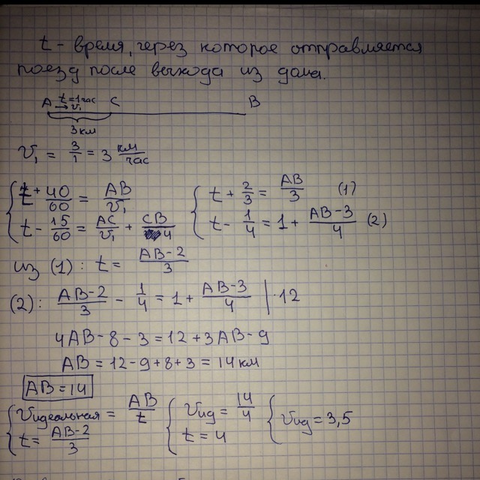 t - время, через которое отправляется
поезд после выхода из дома.
A t=1час v₁ C B
3км
v₁ = 3/1 = 3 км/час
{ t + 40/60 = AB/v₁ { t + 2/3 = AB/3 (1)
t - 15/60 = AC/v₁ + CB/4 t - 1/4 = 1 + AB-3/4 (2)
из (1): t = AB-2/3
(2): AB-2/3 - 1/4 = 1 + AB-3/4 | ·12
4AB - 8 - 3 = 12 + 3AB - 9
AB = 12 - 9 + 8 + 3 = 14 км
AB = 14
{ vидеальная = AB/t { vид = 14/4 { vид = 3,5
t = AB-2/3 t = 4